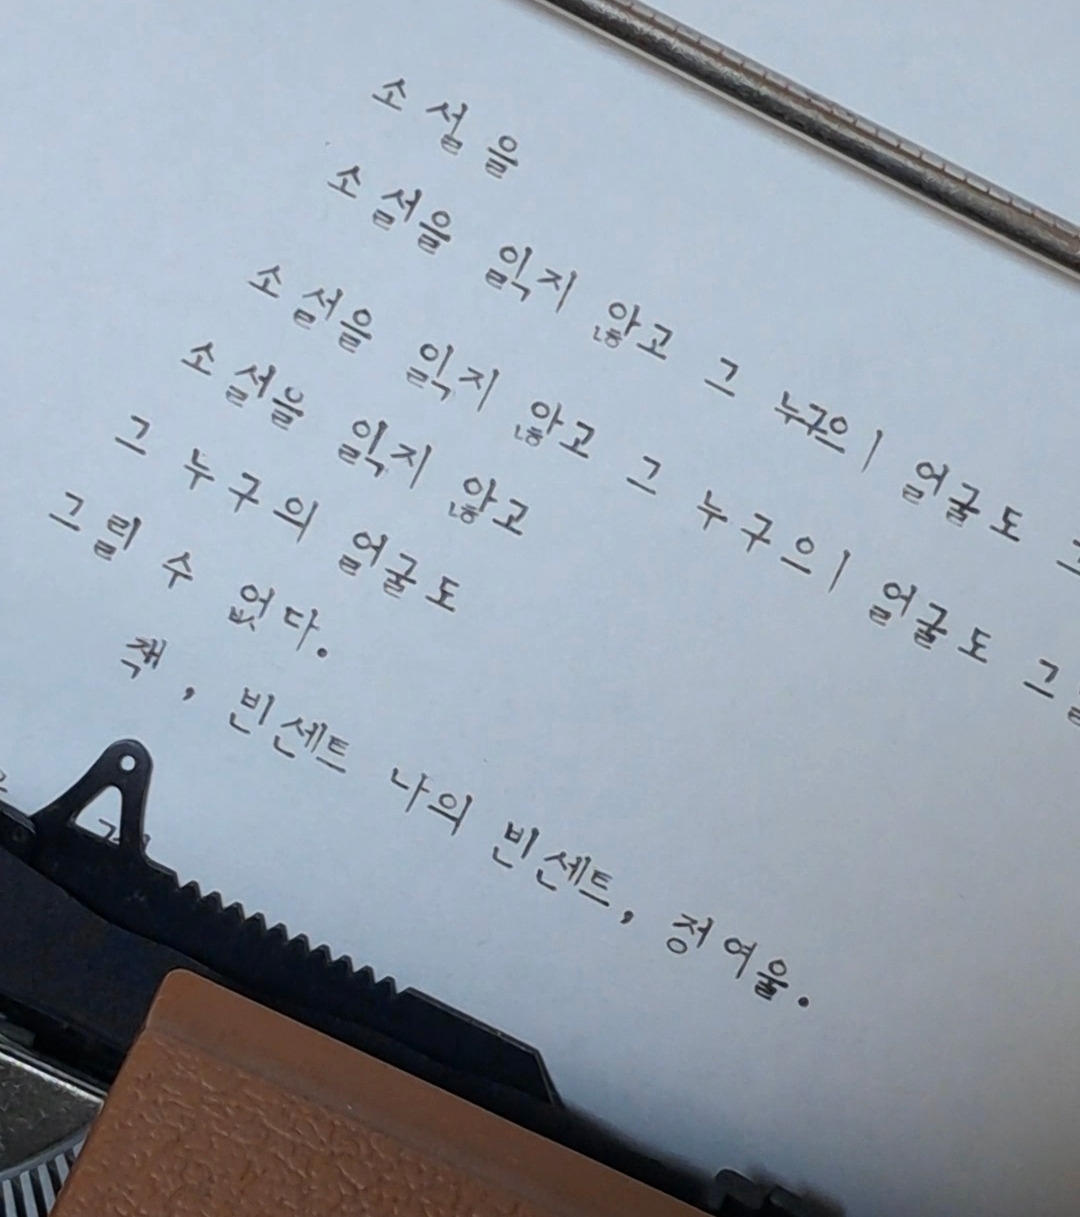 소설을
소설을 읽지 않고 그 누구으ㅣ 얼굴도
소설을 읽지 않고 그 누구으ㅣ 얼굴도
소설을 읽지 않고
그 누구의 얼굴도
그릴 수 없다.
책, 빈센트 나의 빈센트, 정여울.